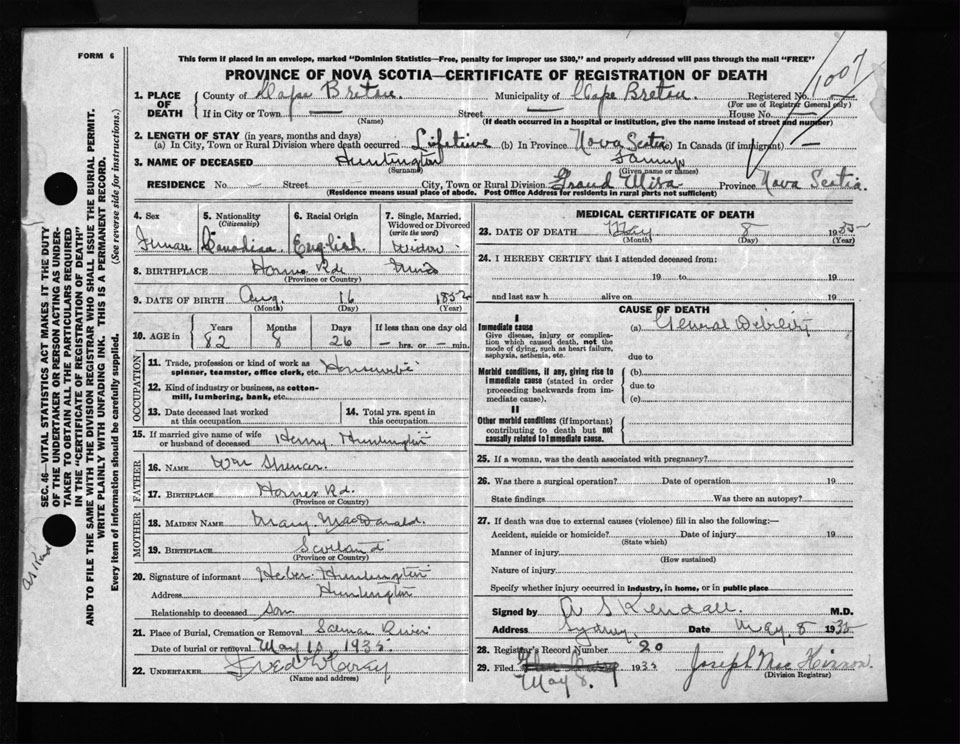 FORM 6
This form if placed in an envelope, marked "Dominion Statistics—Free, penalty for improper use $300," and properly addressed will pass through the mail "FREE"
PROVINCE OF NOVA SCOTIA—CERTIFICATE OF REGISTRATION OF DEATH
1007
1. PLACE OF DEATH
County of Cape Breton. Municipality of Cape Breton. Registered No.
(For use of Registrar General only)
If in City or Town — Street House No. —
(Name) (If death occurred in a hospital or institution, give the name instead of street and number)
2. LENGTH OF STAY (in years, months and days)
(a) In City, Town or Rural Division where death occurred Lifetime (b) In Province Nova Scotia (c) In Canada (if immigrant) —
3. NAME OF DECEASED Huntington Fanny
(Surname) (Given name or names)
RESIDENCE No. — Street City, Town or Rural Division Grand Mira Province Nova Scotia.
(Residence means usual place of abode. Post Office Address for residents in rural parts not sufficient)
4. Sex
5. Nationality (Citizenship)
6. Racial Origin
7. Single, Married, Widowed or Divorced (write the word)
Female Canadian English Widow
8. BIRTHPLACE Hornes Rd. Mira
(Province or Country)
9. DATE OF BIRTH Aug. 16 1852
(Month) (Day) (Year)
10. AGE in Years Months Days If less than one day old
82 8 26 — hrs. or — min.
OCCUPATION
11. Trade, profession or kind of work as spinner, teamster, office clerk, etc. Housewife
12. Kind of industry or business, as cotton-mill, lumbering, bank, etc.
13. Date deceased last worked at this occupation
14. Total yrs. spent in this occupation
15. If married give name of wife or husband of deceased Henry Huntington
FATHER
16. NAME Wm Spencer.
17. BIRTHPLACE Hornes Rd.
(Province or Country)
MOTHER
18. MAIDEN NAME Mary MacDonald.
19. BIRTHPLACE Scotland
(Province or Country)
20. Signature of informant Heber Huntington
Address Huntington
Relationship to deceased Son
21. Place of Burial, Cremation or Removal Salmon River
Date of burial or removal May 10 1935.
22. UNDERTAKER Fred
(Name and address)
MEDICAL CERTIFICATE OF DEATH
23. DATE OF DEATH May 8 1935
(Month) (Day) (Year)
24. I HEREBY CERTIFY that I attended deceased from:
19 to 19
and last saw h alive on 19
CAUSE OF DEATH
I
Immediate cause (a) General Debility
Give disease, injury or complication which caused death, not the mode of dying, such as heart failure, asphyxia, asthenia, etc.
due to
Morbid conditions, if any, giving rise to immediate cause (stated in order proceeding backwards from immediate cause).
(b)
due to
(c)
II
Other morbid conditions (if important) contributing to death but not causally related to immediate cause.
25. If a woman, was the death associated with pregnancy?
26. Was there a surgical operation? Date of operation 19
State findings Was there an autopsy?
27. If death was due to external causes (violence) fill in also the following:—
Accident, suicide or homicide? Date of injury 19
(State which)
Manner of injury
(How sustained)
Nature of injury
Specify whether injury occurred in industry, in home, or in public place
Signed by A S Kendall. M.D.
Address Sydney Date May 8 1935
28. Registrar's Record Number 20
29. Filed 1935 Joseph Mac Kinnon.
May 8.
(Division Registrar)
SEC. 46—VITAL STATISTICS ACT MAKES IT THE DUTY
OF THE UNDERTAKER OR PERSON ACTING AS UNDER-
TAKER TO OBTAIN ALL THE PARTICULARS REQUIRED
IN THE "CERTIFICATE OF REGISTRATION OF DEATH"
AND TO FILE THE SAME WITH THE DIVISION REGISTRAR WHO SHALL ISSUE THE BURIAL PERMIT.
WRITE PLAINLY WITH UNFADING INK. THIS IS A PERMANENT RECORD.
Every item of information should be carefully supplied. (See reverse side for instructions.)